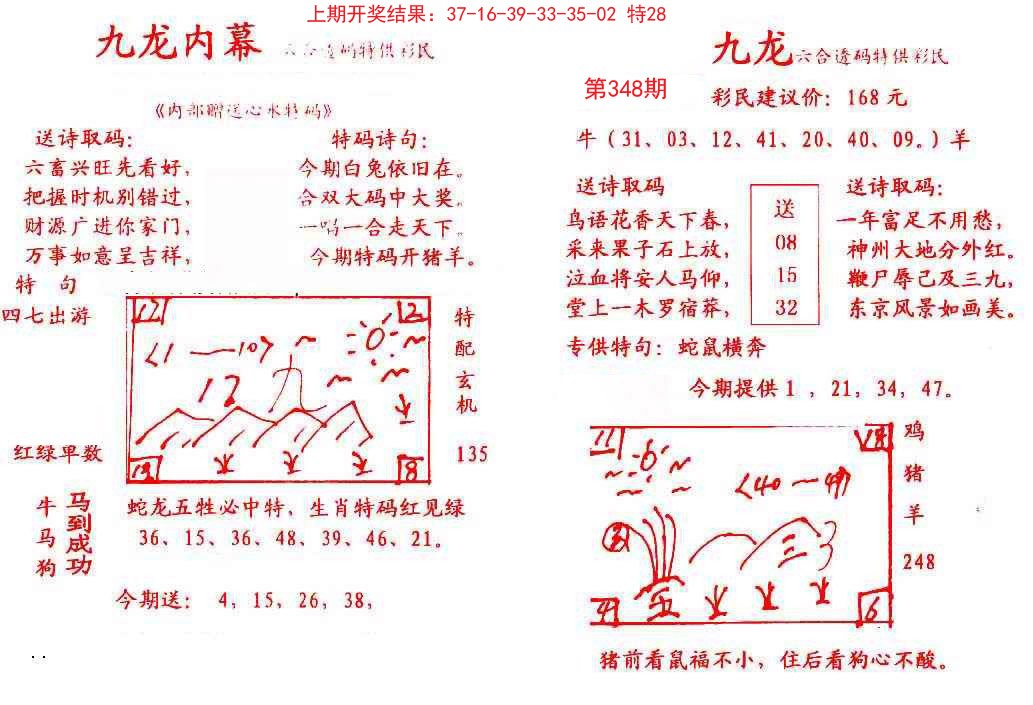 上期开奖结果：37-16-39-33-35-02 特28
九龙内幕 六合透码特供彩民
《内部赠送心水特码》
送诗取码：
六畜兴旺先看好，
把握时机别错过，
财源广进你家门，
万事如意呈吉祥，
特码诗句：
今期白兔依旧在。
合双大码中大奖。
一唱一合走天下。
今期特码开猪羊。
特 句
四七出游
红绿单数
17
12
<1—10>
12
九
19
8
特配玄机
135
牛马狗
马到成功
蛇龙五牲必中特，生肖特码红见绿
36、15、36、48、39、46、21。
今期送： 4，15，26，38，
九龙六合透码特供彩民
第348期
彩民建议价：168元
牛（31、03、12、41、20、40、09。）羊
送诗取码
鸟语花香天下春，
采来果子石上放，
泣血将安人马仰，
堂上一木罗宿莽，
送
08
15
32
送诗取码：
一年富足不用愁，
神州大地分外红。
鞭尸辱己及三九，
东京风景如画美。
专供特句：蛇鼠横奔
今期提供1 ，21，34，47。
11
<40—49>
三
4
五
6
鸡
猪
羊
248
猪前看鼠福不小，住后看狗心不酸。